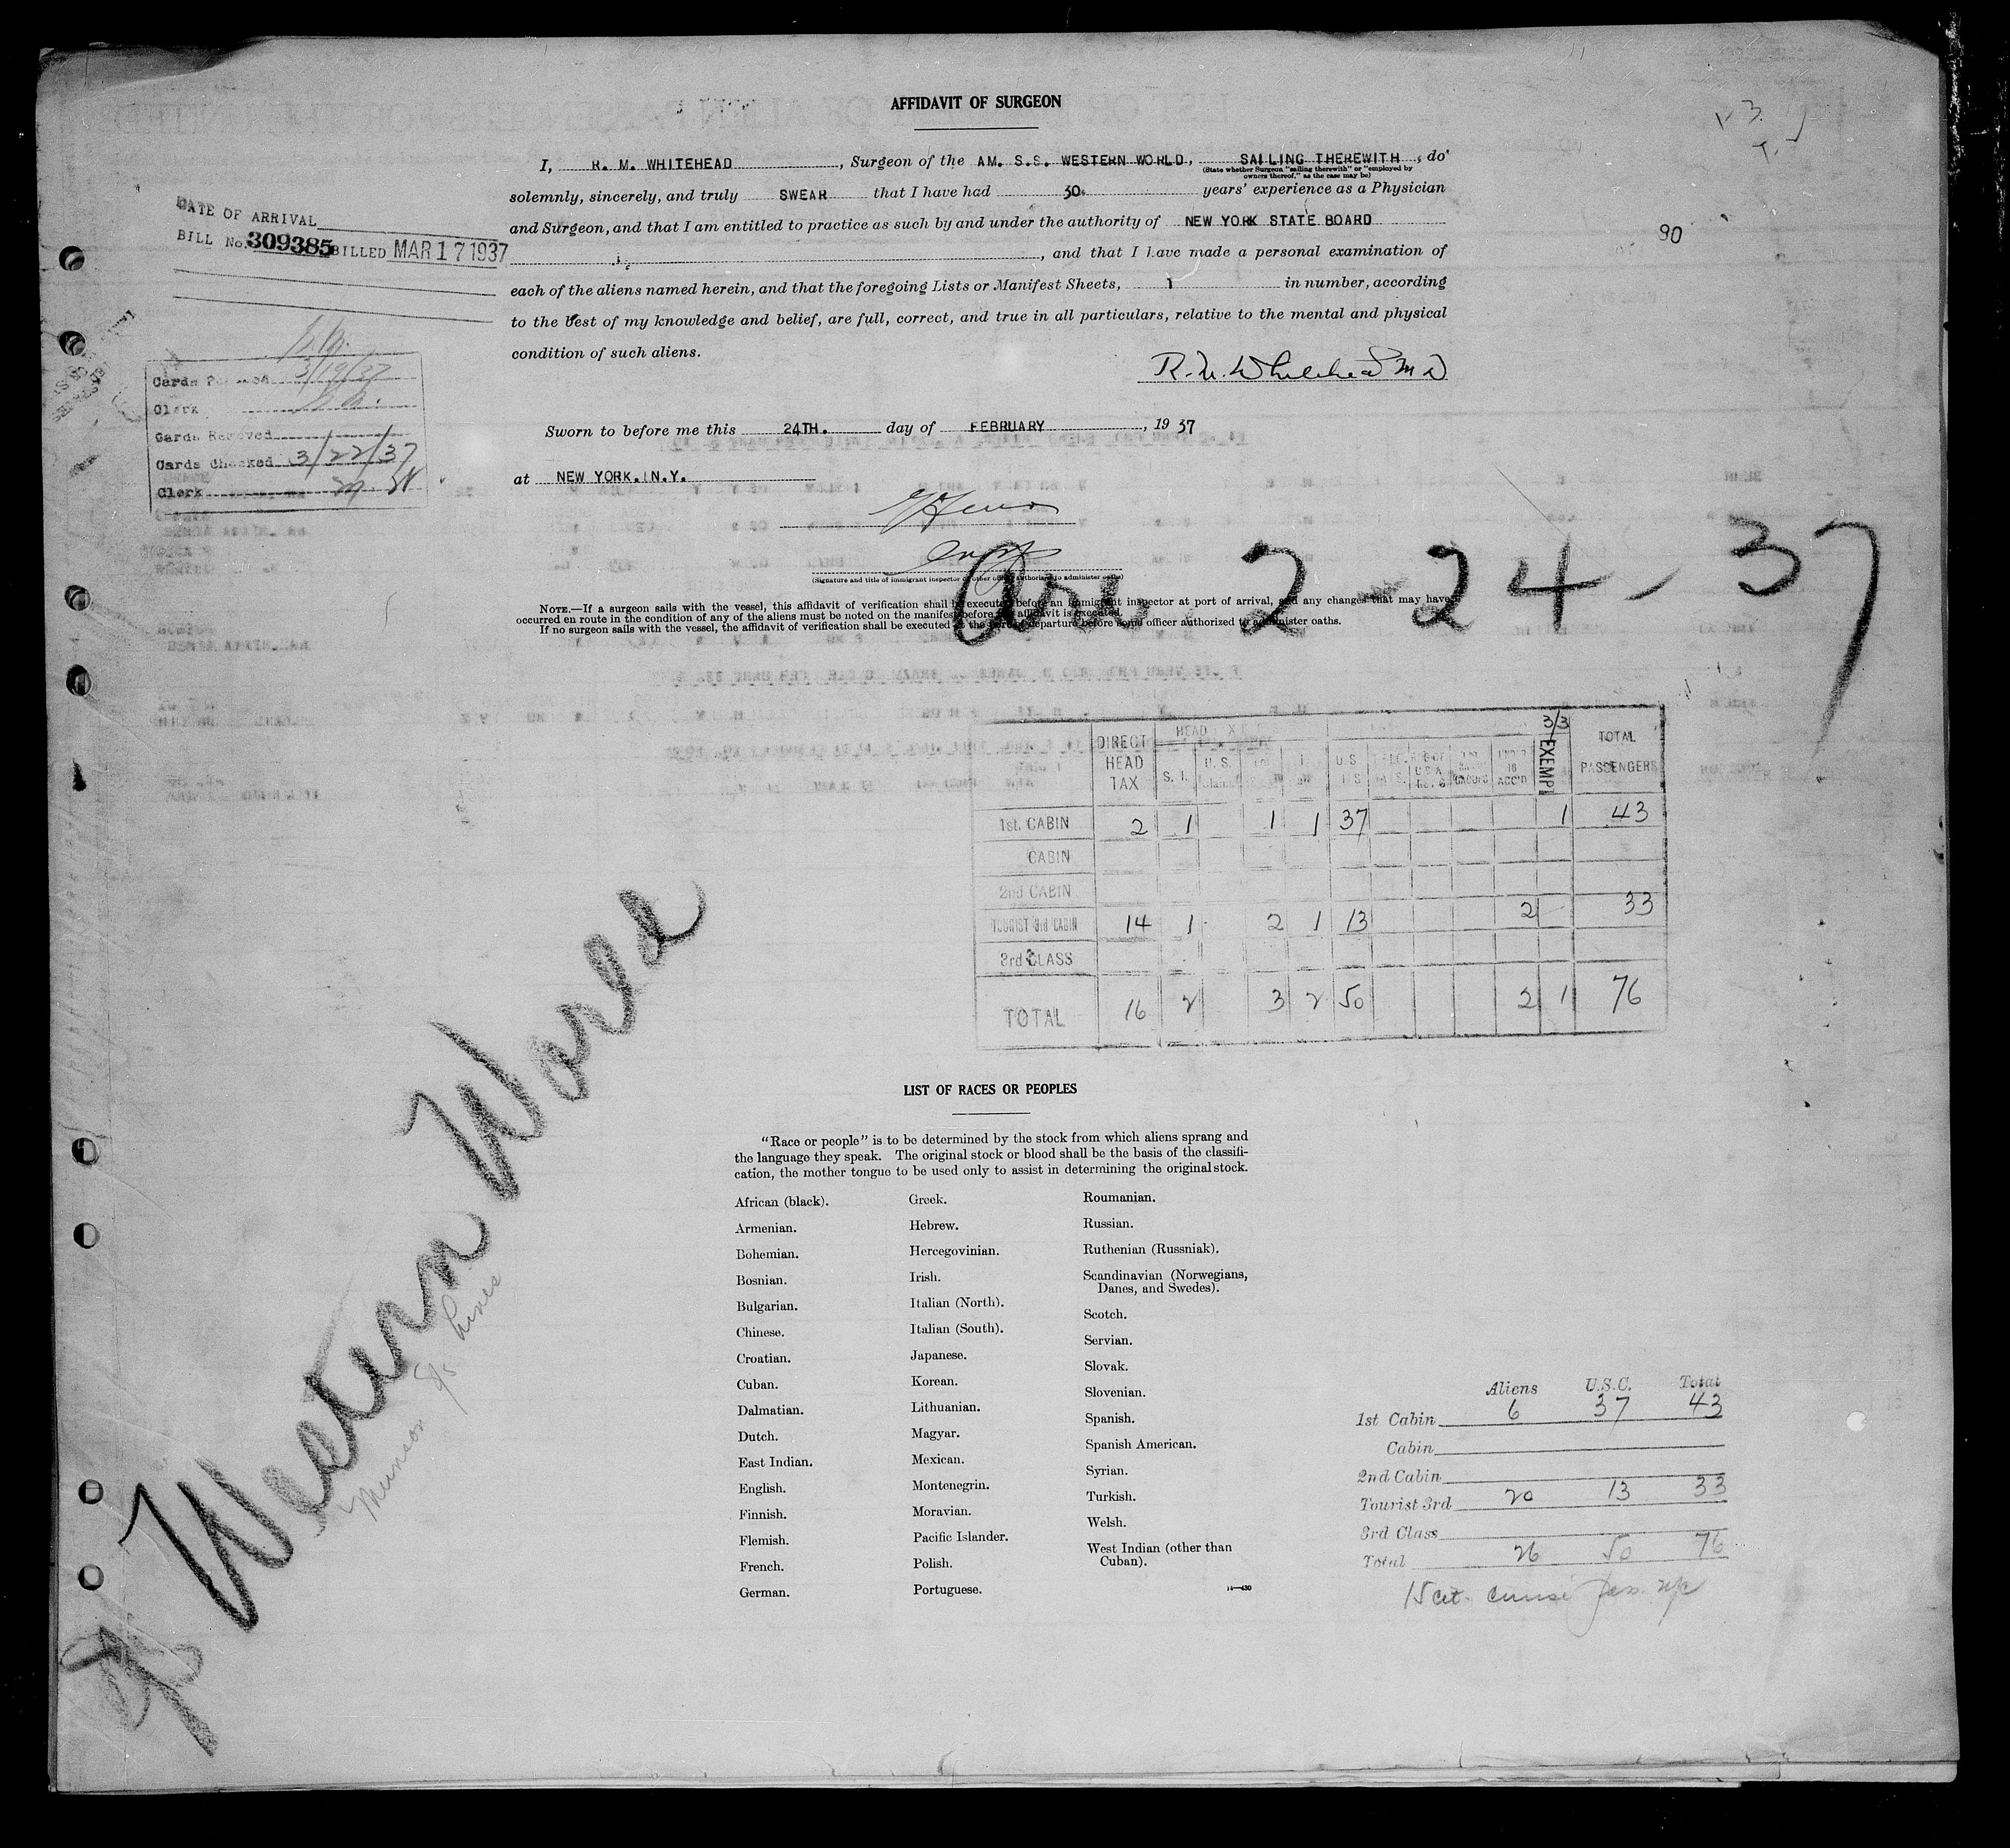 AFFIDAVIT OF SURGEON
I, R. M. WHITEHEAD, Surgeon of the AM. S.S. WESTERN WORLD, SAILING THEREWITH, do
(State whether Surgeon "sailing therewith" or "employed by owners thereof," as the case may be)
solemnly, sincerely, and truly SWEAR that I have had 30 years' experience as a Physician
and Surgeon, and that I am entitled to practice as such by and under the authority of NEW YORK STATE BOARD
, and that I have made a personal examination of
each of the aliens named herein, and that the foregoing Lists or Manifest Sheets, 1 in number, according
to the best of my knowledge and belief, are full, correct, and true in all particulars, relative to the mental and physical
condition of such aliens.
R. M. Whitehead M D
Sworn to before me this 24TH. day of FEBRUARY, 1937
at NEW YORK. N.Y.
(Signature and title of immigrant inspector or other officer authorized to administer oaths)
NOTE.—If a surgeon sails with the vessel, this affidavit of verification shall be executed before an immigrant inspector at port of arrival, and any changes that may have
occurred en route in the condition of any of the aliens must be noted on the manifest before the affidavit is executed.
If no surgeon sails with the vessel, the affidavit of verification shall be executed at the port of departure before some officer authorized to administer oaths.
DATE OF ARRIVAL
BILL No. 309385 BILLED MAR 17 1937
90
Cards 3/19/37
Clerk
Cards Removed
Cards Checked 3/22/37
Clerk
Arr 2-24-37
DIRECT HEAD TAX
HEAD
S. I.
U. S.
U.S
UNDER 16 ACC'D
3/3 EXEMPT
TOTAL PASSENGERS
1st. CABIN 2 1 1 1 37 1 43
CABIN
2nd CABIN
TOURIST 3rd CABIN 14 1 2 1 13 2 33
3rd CLASS
TOTAL 16 2 3 2 50 2 1 76
Western World
Munson S/S Lines
LIST OF RACES OR PEOPLES
"Race or people" is to be determined by the stock from which aliens sprang and
the language they speak. The original stock or blood shall be the basis of the classifi-
cation, the mother tongue to be used only to assist in determining the original stock.
African (black).
Armenian.
Bohemian.
Bosnian.
Bulgarian.
Chinese.
Croatian.
Cuban.
Dalmatian.
Dutch.
East Indian.
English.
Finnish.
Flemish.
French.
German.
Greek.
Hebrew.
Hercegovinian.
Irish.
Italian (North).
Italian (South).
Japanese.
Korean.
Lithuanian.
Magyar.
Mexican.
Montenegrin.
Moravian.
Pacific Islander.
Polish.
Portuguese.
Roumanian.
Russian.
Ruthenian (Russniak).
Scandinavian (Norwegians,
Danes, and Swedes).
Scotch.
Servian.
Slovak.
Slovenian.
Spanish.
Spanish American.
Syrian.
Turkish.
Welsh.
West Indian (other than
Cuban).
Aliens U.S.C. Total
1st Cabin 6 37 43
Cabin
2nd Cabin
Tourist 3rd 20 13 33
3rd Class
Total 26 50 76